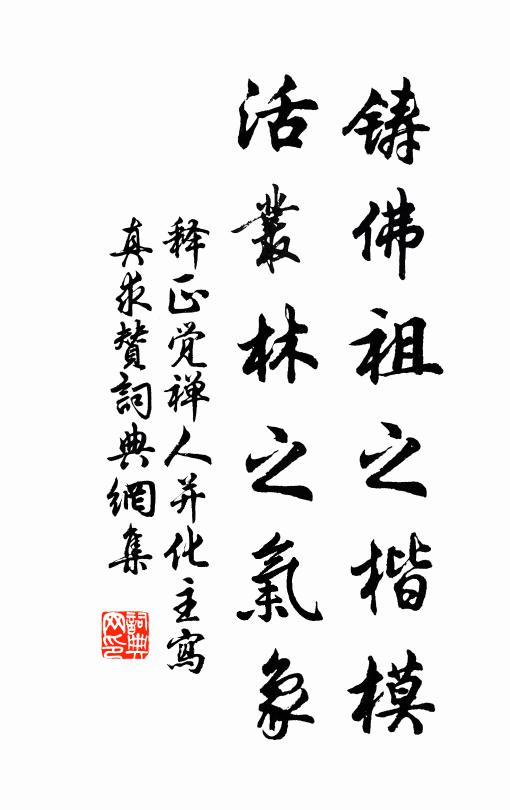 铸佛祖之楷模
活叢林之氣象
释正觉禅人并化主寫
真求贊詞典網集
詞典网印